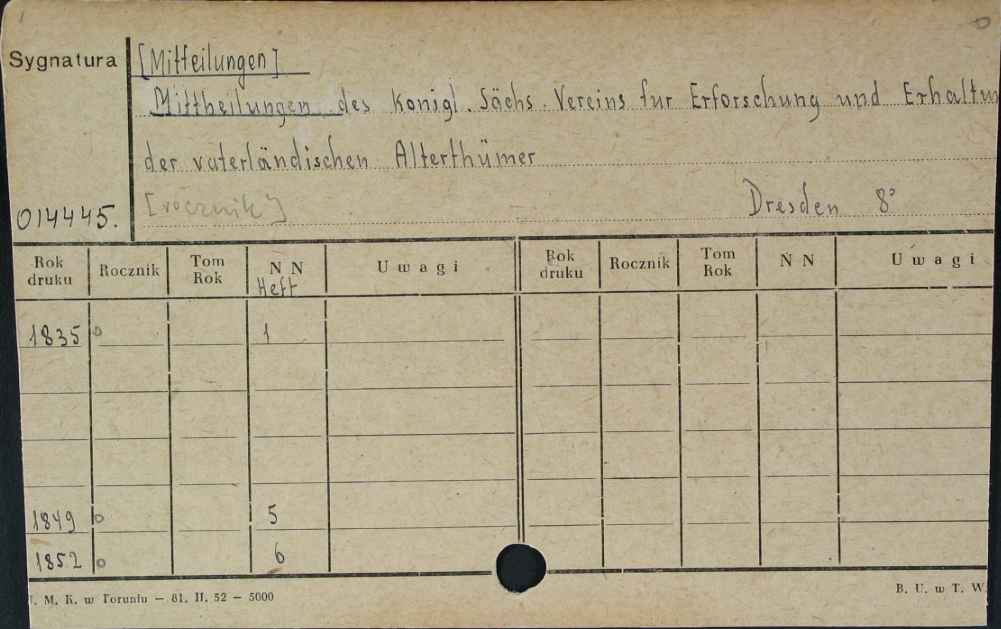 Sygnatura [Mitteilungen]
Mittheilungen des Konigl. Sächs. Vereins fur Erforschung und Erhaltun
der vaterländischen Alterthümer
014445. [rocznik] Dresden 8°
Rok druku Rocznik Tom Rok N N Heft Uwagi Rok druku Rocznik Tom Rok N N Uwagi
1835 o 1
1849 o 5
1852 o 6
U. M. K. w Toruniu — 81. II. 52 — 5000 B. U. w T. W.